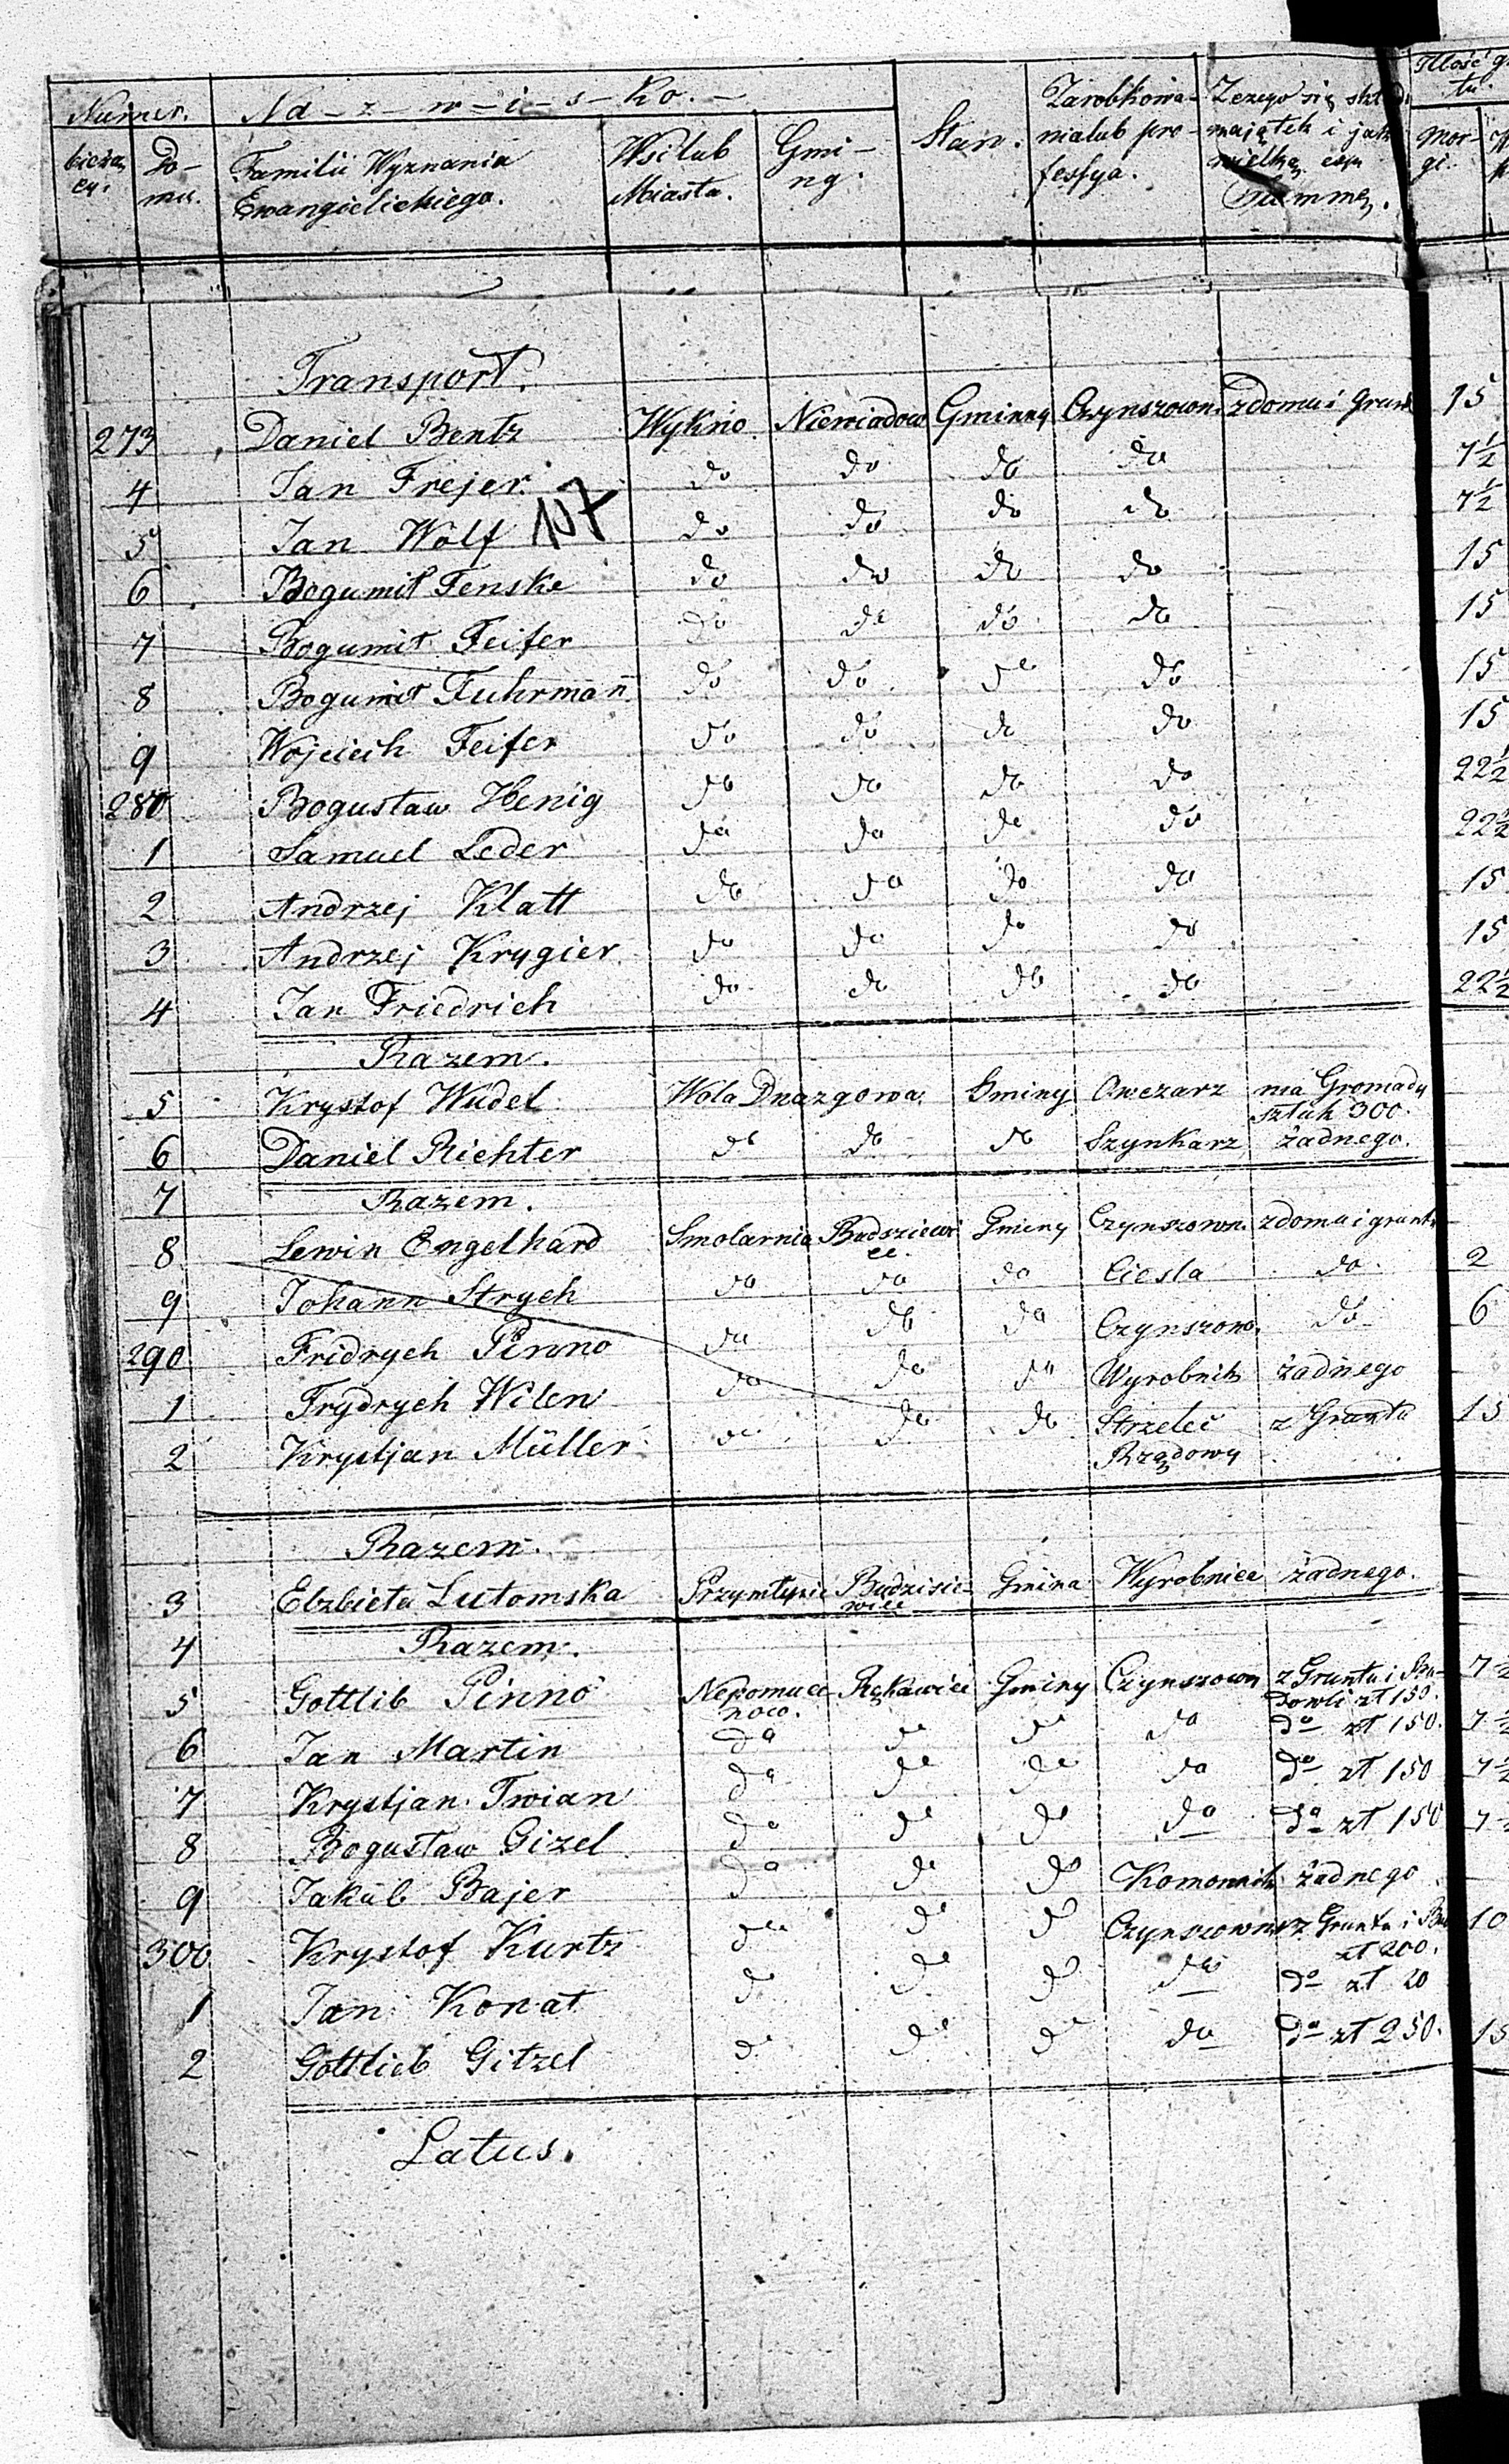 Numer. Na-z-w-i-s-ko.- Stan. Zarobkowa- Z czego się składa Ilość g
nia lub pro- majątek i jak tu.
bieżą Do- Familii Wyznania Wsi lub Gmi- fessya. wielką czyn Mor-
cy. mu. Ewangielickiego. Miasta. ny. Summę. gi.
Transport.
273 Daniel Bentz Wykno Niewiadow Gminny Czynszown. z domu i Grun 15
4 Jan Frejer do do do do 7½
5 Jan Wolf 107 do do do do 7½
6 Bogumił Fenske do do do do 15
7 Bogumił Feifer do do do do 15
8 Bogumił Fuhrmañ do do do do 15
9 Wojciech Feifer do do do do 15
280 Bogusław Henig do do do do 22½
1 Samuel Leder do do do do 22½
2 Andrzej Klatt do do do do 15
3 Andrzej Krygier do do do do 15
4 Jan Friedrich do do do do 22½
Razem.
5 Krystof Wudel Wola Drazgowa Gminy Owczarz ma Gromadę
sztuk 300.
6 Daniel Richter do do do Szynkarz żadnego.
7 Razem.
8 Lewin Engelhard Smolarnia Budsziewi Gminy Czynszown. z domu i grunt
ce.
9 Johann Strych do do do Ciesla do. 2
290 Fridrych Pinno do do do Czynszow. do 6
1 Frydrych Wilen do do do Wyrobnik żadnego
2 Krystjan Müller do do do Strzelec z Gruntu 15
Rządowy
Razem.
3 Elzbieta Lutomska Przymłynie Budzisie- Gmina Wyrobnica żadnego.
wice
4 Razem.
5 Gottlib Pinno Nepomuce Rękawiec Gminy Czynszown z Gruntu i Bu- 7½
noco. dowli zł 150.
6 Jan Martin do do do do do zł 150. 7½
7 Krystjan Twian do do do do do zł 150 7½
8 Bogusław Gizel do do do do do zł 150 7½
9 Jakub Bajer do do do Komornik żadnego
300 Krystof Kurtz do do do Czynszown z Gruntu i Bu 10
zł 200.
1 Jan Konat do do do do do zł 20
2 Gottlieb Gitzel do do do do do zł 250. 15
Latus.